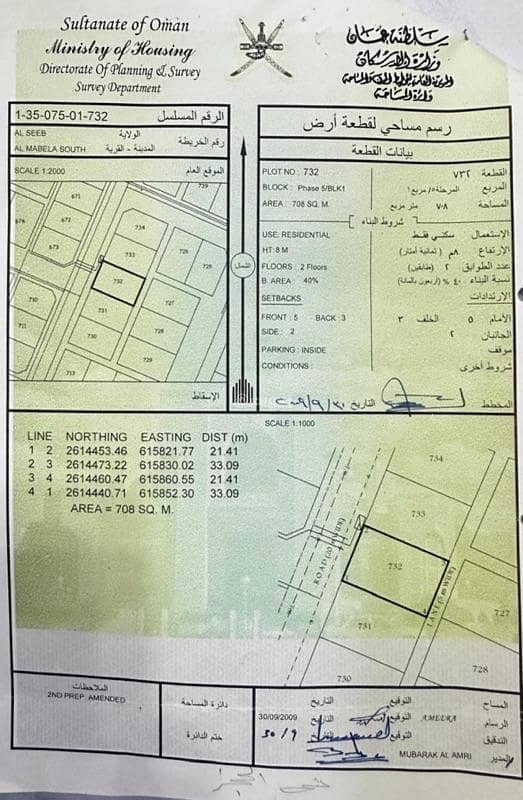 Sultanate of Oman
Ministry of Housing
Directorate Of Planning & Survey
Survey Department
سلطنة عمان
وزارة الإسكان
1-35-075-01-732 الرقم المسلسل
AL SEEB الولاية
AL MABELA SOUTH المدينة - القرية
رقم الخريطة
SCALE 1:2000 الموقع العام
739
671
672
673
674
734
733
732
731
730
726
725
727
728
729
710
711
713
الإسقاط
الشمال
رسم مساحي لقطعة أرض
بيانات القطعة
PLOT NO : 732 القطعة ٧٣٢
BLOCK : Phase 5/BLK1 المربع المرحلة٥/ مربع١
AREA : 708 SQ. M. المساحة ٧٠٨ متر مربع
شروط البناء
USE: RESIDENTIAL الإستعمال سكني فقط
HT: 8 M الإرتفاع ٨م (ثمانية أمتار)
FLOORS : 2 Floors عدد الطوابق ٢ (طابقين)
B. AREA : 40% نسبة البناء ٤٠ % (أربعون بالمائة)
SETBACKS الإرتدادات
FRONT : 5 BACK : 3 الأمام ٥ الخلف ٣
SIDE : 2 الجانبان ٢
PARKING : INSIDE موقف
CONDITIONS : شروط أخرى
المخطط التاريخ ٢٠٠٩/٩/٣٠
SCALE 1:1000
LINE NORTHING EASTING DIST (m)
1 2 2614453.46 615821.77 21.41
2 3 2614473.22 615830.02 33.09
3 4 2614460.47 615860.55 21.41
4 1 2614440.71 615852.30 33.09
AREA = 708 SQ. M.
734
733
732
731
730
727
728
ROAD (20 m WIDE)
LANE (5 m WIDE)
الملاحظات
2ND PREP. AMENDED
دائرة المساحة
ختم الدائرة
المساح التوقيع التاريخ
الرسام AMEERA التوقيع التاريخ 30/09/2009
التدقيق التوقيع التاريخ 30/9
المدير MUBARAK AL AMRI